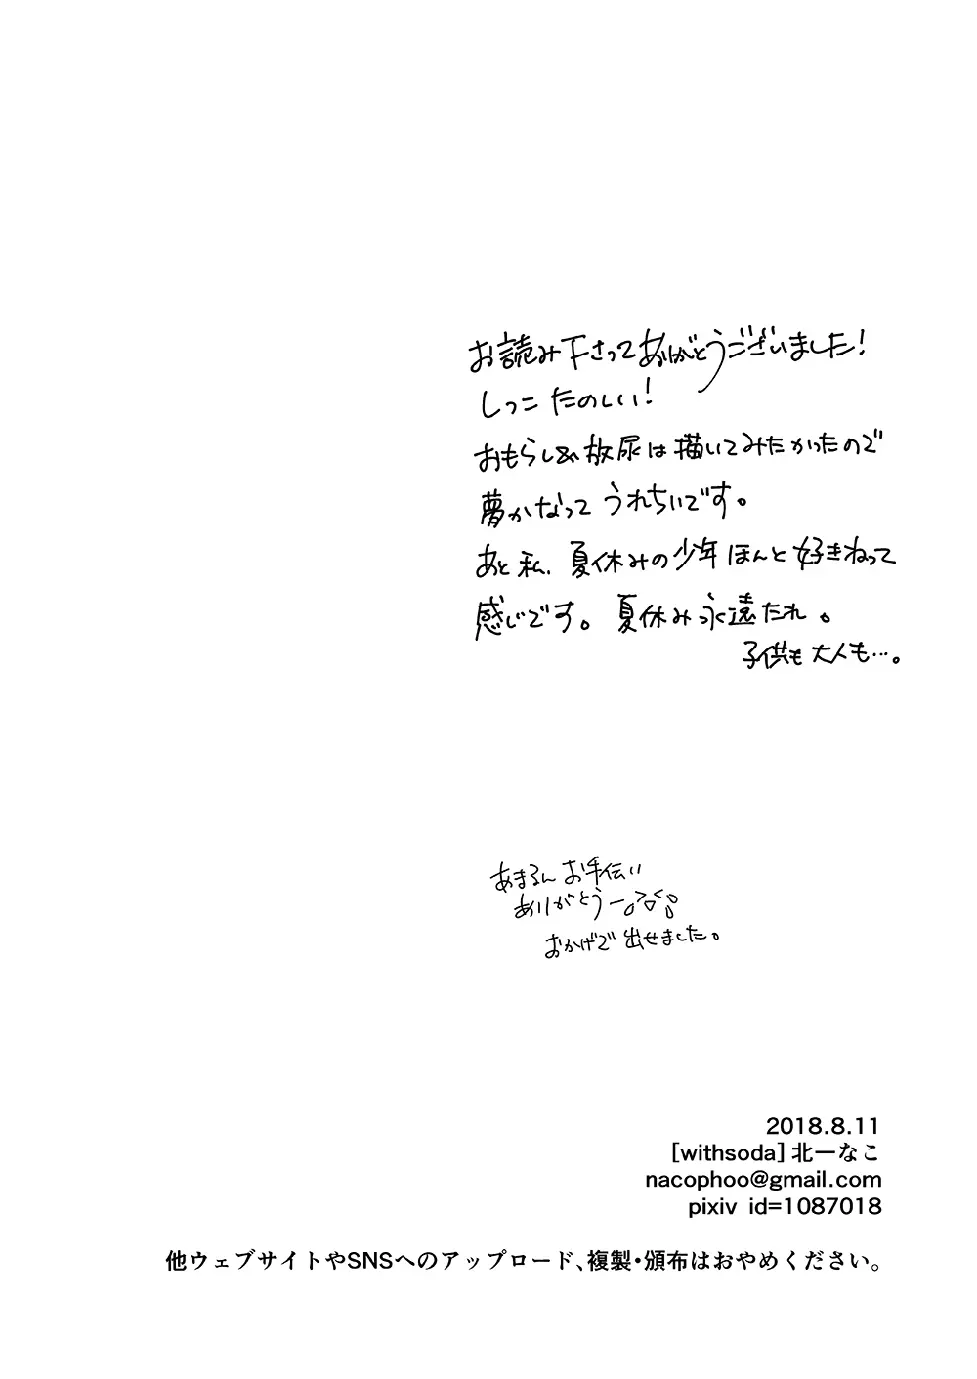 お読み下さってありがとうございました!
しっこ たのしい!
おもらし&放尿は描いてみたかったので
夢かなって うれちいです。
あと 私、夏休みの少年 ほんと 好きねって
感じです。夏休み永遠たれ。
子供も大人も…。
あまるん お手伝い
ありがとうー
おかげで 出せました。
2018.8.11
[withsoda]北一なこ
nacophoo@gmail.com
pixiv id=1087018
他ウェブサイトやSNSへのアップロード、複製・頒布はおやめください。